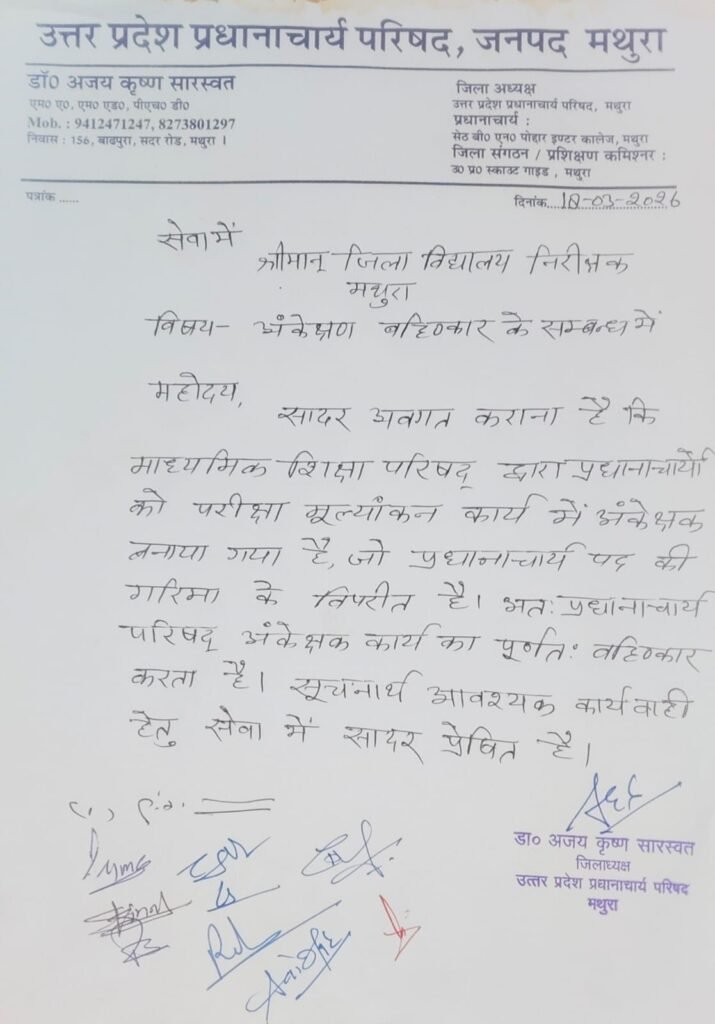 उत्तर प्रदेश प्रधानाचार्य परिषद, जनपद मथुरा
डॉ० अजय कृष्ण सारस्वत
एम० ए०, एम० एड०, पीएच० डी०
Mob. : 9412471247, 8273801297
निवास : 156, बाढपुरा, सदर रोड, मथुरा ।
जिला अध्यक्ष
उत्तर प्रदेश प्रधानाचार्य परिषद, मथुरा
प्रधानाचार्य :
सेठ बी० एन० पोद्दार इण्टर कालेज, मथुरा
जिला संगठन / प्रशिक्षण कमिश्नर :
उ० प्र० स्काउट गाइड , मथुरा
पत्रांक ......
दिनांक....18-03-2026
सेवा में
श्रीमान् जिला विद्यालय निरीक्षक
मथुरा
विषय- अंकेक्षण बहिष्कार के सम्बन्ध में
महोदय,
सादर अवगत कराना है कि
माध्यमिक शिक्षा परिषद् द्वारा प्रधानाचार्यों
को परीक्षा मूल्यांकन कार्य में अंकेक्षक
बनाया गया है, जो प्रधानाचार्य पद की
गरिमा के विपरीत है। अतः प्रधानाचार्य
परिषद् अंकेक्षक कार्य का पूर्णतः बहिष्कार
करता है। सूचनार्थ आवश्यक कार्यवाही
हेतु सेवा में सादर प्रेषित है।
डा० अजय कृष्ण सारस्वत
जिलाध्यक्ष
उत्तर प्रदेश प्रधानाचार्य परिषद
मथुरा